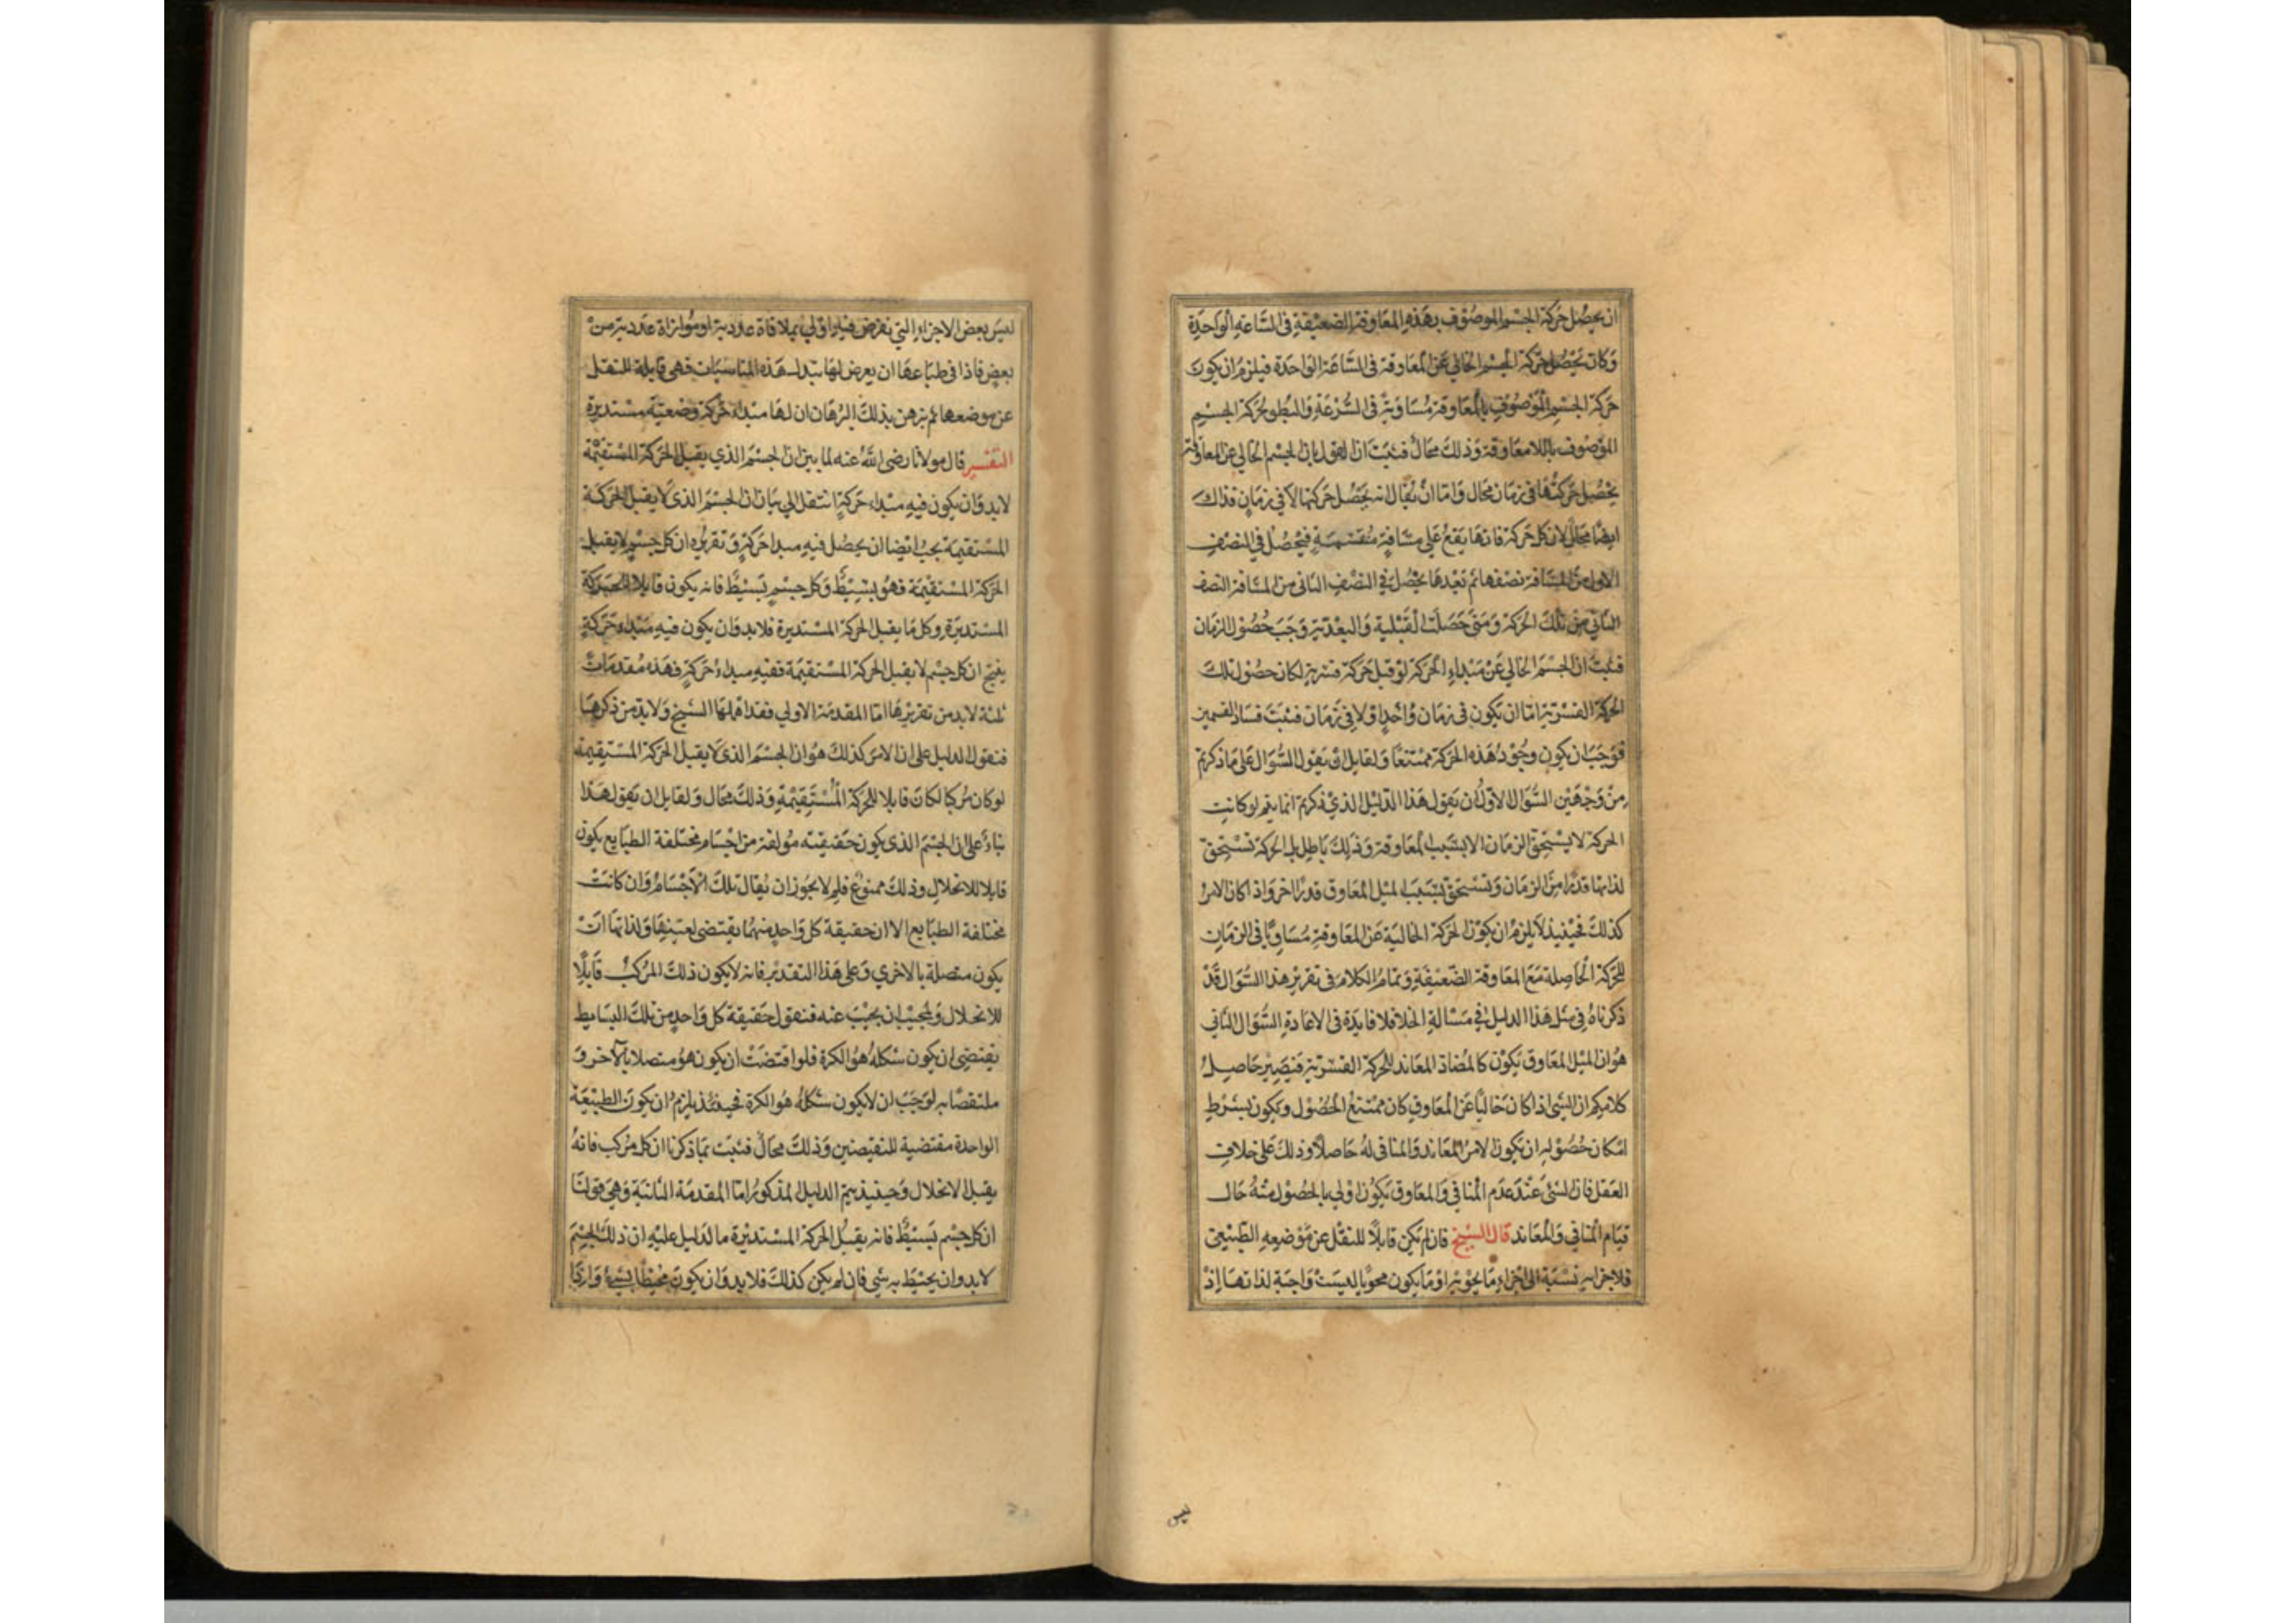 ان يحصل حركة الجسم الموصوف بهذه المعاوقة الضعيفة فى الساعة الواحدة
وكان يحصل حركة الجسم الخالي عن المعاوقة فى الساعة الواحدة فيلزم ان يكون
حركة الجسم الموصوف بالمعاوقة مساوية فى السرعة والبطو لحركة الجسم
الموصوف باللامعاوقة وذلك محال فثبت ان القول بان الجسم الخالي عن المعاوقة
يحصل حركتها فى زمان محال واما ان يقال انه يحصل حركتها لا في زمان فذاك
ايضا محال لان كل حركة فانها يقع على مسافة منقسمة فيحصل في النصف
الاول من المسافة نصفها ثم بعدها يحصل في النصف الثانى من المسافة النصف
الثاني من تلك الحركة ومتى حصلت القبلية والبعدية وجب حصول الزمان
فثبت ان الجسم الخالي عن مبداء الحركة لو قبل حركة قسرية لكان حصول تلك
الحركة القسرية اما ان يكون فى زمان واحد او لا في زمان فثبت فساد القسمين
فوجب ان يكون وجود هذه الحركة ممتنعا ولقايل ان يقول السؤال على ما ذكرتم
من وجهين السؤال الاول ان يقول هذا الدليل الذي ذكرتم انما يتم لو كانت
الحركة لا يستحق الزمان الا بسبب المعاوقة وذلك باطل بل الحركة تستحق
لذاتها قدرا من الزمان وتستحق بسبب الميل المعاوق قدرا اخر واذا كان الامر
كذلك فحينيذ لا يلزم ان يكون الحركة الخالية عن المعاوقة مساويا فى الزمان
للحركة الحاصلة مع المعاوقة الضعيفة وتمام الكلام فى تقرير هذا السؤال قد
ذكرناه فى مثل هذا الدليل في مسالة الخلا فلا فايدة فى الاعادة السؤال الثاني
هو ان الميل المعاوق يكون كالمضاد المعاند للحركة القسرية فيصير حاصل
كلامكم ان الشى اذا كان خاليا عن المعاوق كان ممتنع الحصول ويكون بشرط
امكان حصوله ان يكون الامر المعاند والمنافى له حاصلا وذلك على خلاف
العقل فان الشئ عند عدم المنافي والمعاوق يكون اولي بالحصول منه حال
قيام المنافي والمعاند قال الشيخ فان لم يكن قابلا للنقل عن موضعه الطبيعى
فلاجزايه نسبة الى اجزاء ما يحويه او ما يكون محويا ليست واجبة لذاتها اذ
ليس
ليس بعض الاجزاء التي تفرض فيه اولي بملاقاة عددية او موازاة عددية من
بعض فاذا فى طباعها ان يعرض لها تبدل هذه المناسبات فهي قابلة للنقل
عن موضعها ثم برهن بذلك البرهان ان لها مبداء حركة وضعية مستديرة
التفسير قال مولانا رضى الله عنه لما بين ان الجسم الذي يقبل الحركة المستقيمة
لابد وان يكون فيه مبداء حركة انتقل الي بيان ان الجسم الذى لا يقبل الحركة
المستقيمة يجب ايضا ان يحصل فيه مبدا حركة وتقريره ان كل جسم لا يقبل
الحركة المستقيمة فهو بسيط وكل جسم بسيط فانه يكون قابلا للحركة
المستديرة وكل ما يقبل الحركة المستديرة فلابد وان يكون فيه مبداء حركة
ينتج ان كل جسم لا يقبل الحركة المستقيمة ففيه مبداء حركة فهذه مقدمات
ثلثة لابد من تقريرها اما المقدمة الاولي فقد اهملها الشيخ ولابد من ذكرها
فنقول الدليل على ان الامر كذلك هو ان الجسم الذى لا يقبل الحركة المستقيمة
لو كان مركبا لكان قابلا للحركة المستقيمة وذلك محال ولقايل ان يقول هذا
بناء على ان الجسم الذى يكون حقيقته مؤلفة من اجسام مختلفة الطبايع يكون
قابلا للانحلال وذلك ممنوع فلم لا يجوز ان يقال تلك الاجسام وان كانت
مختلفة الطبايع الا ان حقيقة كل واحد منهما يقتضى لعينها ولذاتها ان
يكون متصلة بالاخري وعلى هذا التقدير فانه لا يكون ذلك المركب قابلا
للانحلال ولمجيب ان يجيب عنه فنقول حقيقة كل واحد من تلك البسايط
يقتضى ان يكون شكله هو الكرة فلو اقتضت ان يكون هو متصلا بالاخر و
ملتقصا به لوجب ان لا يكون شكله هو الكرة فحينئذ يلزم ان يكون الطبيعة
الواحدة مقتضية للنقيضين وذلك محال فثبت بما ذكرنا ان كل مركب فانه
يقبل الانحلال وحينيذ يتم الدليل المذكور اما المقدمة الثانية وهي قولنا
ان كل جسم بسيط فانه يقبل الحركة المستديرة ما الدليل عليه ان ذلك الجسم
لابد وان يحيط به شي فان لم يكن كذلك فلابد وان يكون محيطا بشيء واما